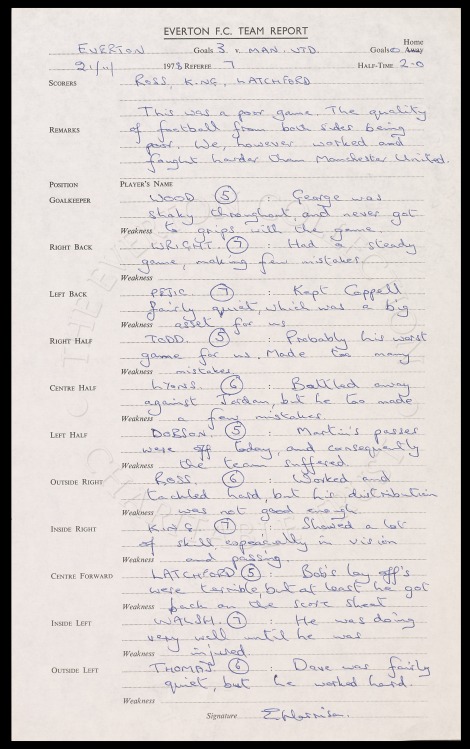 EVERTON F.C. TEAM REPORT
Home
EVERTON Goals 3 v. MAN. UTD. Goals 0 Away
21/11/ 1978 REFEREE 7 HALF-TIME 2-0
SCORERS ROSS, KING, LATCHFORD
This was a poor game. The quality
REMARKS of football from both sides being
poor. We, however worked and
fought harder than Manchester United.
POSITION PLAYER'S NAME
GOALKEEPER WOOD (5) : George was
shaky throughout, and never got
Weakness to grips with the game.
RIGHT BACK WRIGHT (7) : Had a steady
game, making few mistakes.
Weakness
LEFT BACK PEJIC (7) : Kept Coppell
fairly quiet, which was a big
Weakness asset for us
RIGHT HALF TODD. (5) : Probably his worst
game for us. Made too many
Weakness mistakes.
CENTRE HALF LYONS. (6) : Battled away
against Jordan, but he too made
Weakness a few mistakes.
LEFT HALF DOBSON. (5) : Martin's passes
were off today, and consequently
Weakness the team suffered.
OUTSIDE RIGHT ROSS. (6) : Worked and
tackled hard, but his distribution
Weakness was not good enough.
INSIDE RIGHT KING. (7) : Showed a lot
of skill especially in vision
Weakness and passing.
CENTRE FORWARD LATCHFORD (5) : Bob's lay off's
were terrible, but at least he got
Weakness back on the score sheet
INSIDE LEFT WALSH. (7) : He was doing
very well until he was
Weakness injured.
OUTSIDE LEFT THOMAS (6) : Dave was fairly
quiet, but he worked hard.
Weakness
Signature